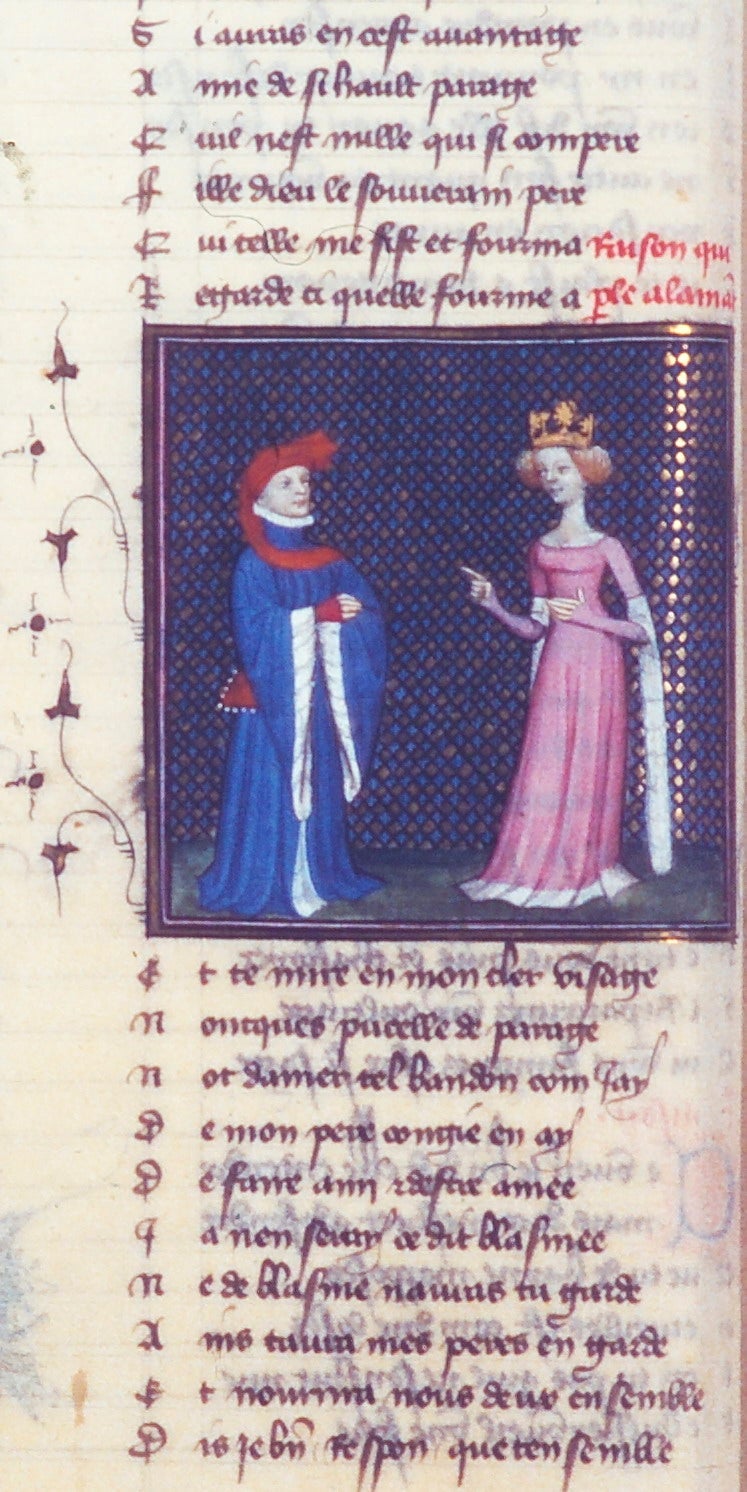 S i auras en cest auantage
A mie de si hault parage
Q uil nest nulle qui si compere
F ille dieu le souuerain pere
Q ui telle me fist et fourma Raison qui
R egarde ci quelle fourme a ple a lamāt
E t te mire en mon cler visage
N oncques pucelle de parage
N ot damer tel bandon com jay
D e mon pere congie en ay
D e faire ami et destre amee
J a nen seray ce dit blasmee
N e de blasme nauras tu garde
A ins taura mes peres en garde
E t nourrira nous deux ensemble
D is je bn̄ Respon que ten semble